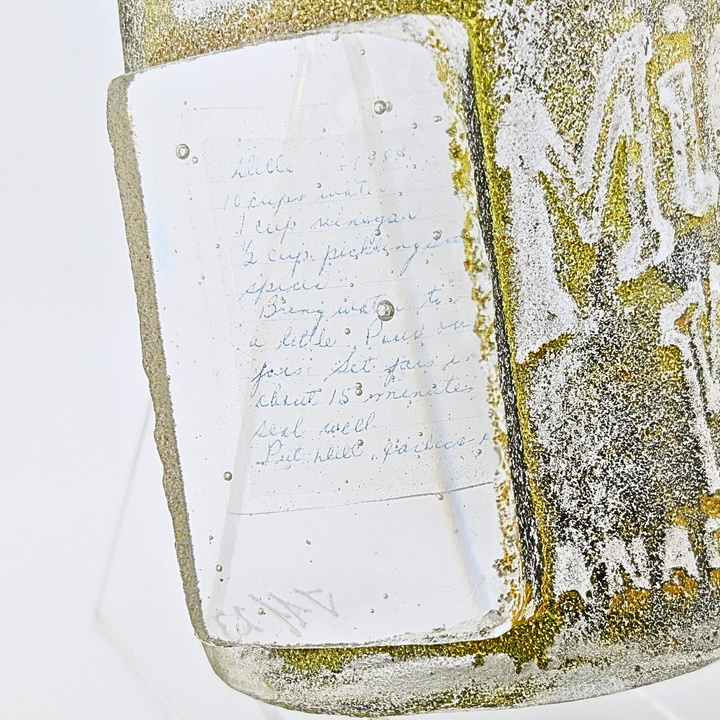 Dills 1988
10 cups water
1 cup vinegar
½ cup pickling
spices
Bring water to
a little Pour on
Set jars in
about 15 minutes
seal well
Put dill, garlic
Mi
ANA